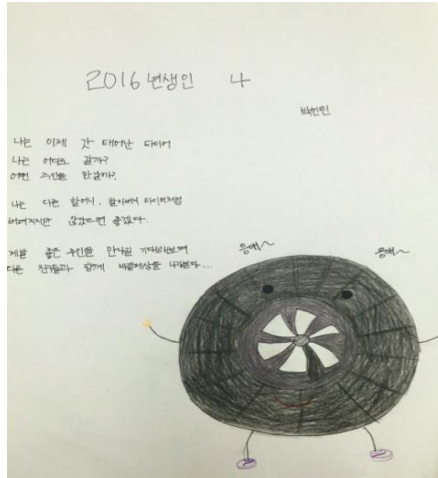 2016년생인 나
박선민
나는 이제 갓 태어난 타이어
나는 어디로 갈까?
어떤 주인을 만날까?
나는 다른 할머니, 할아버지 타이어처럼
버려지지만 않았으면 좋겠다.
제발 좋은 주인을 만나길 기대해보며
다른 친구들과 함께 바깥세상을 나가본다...
응애~
응애~